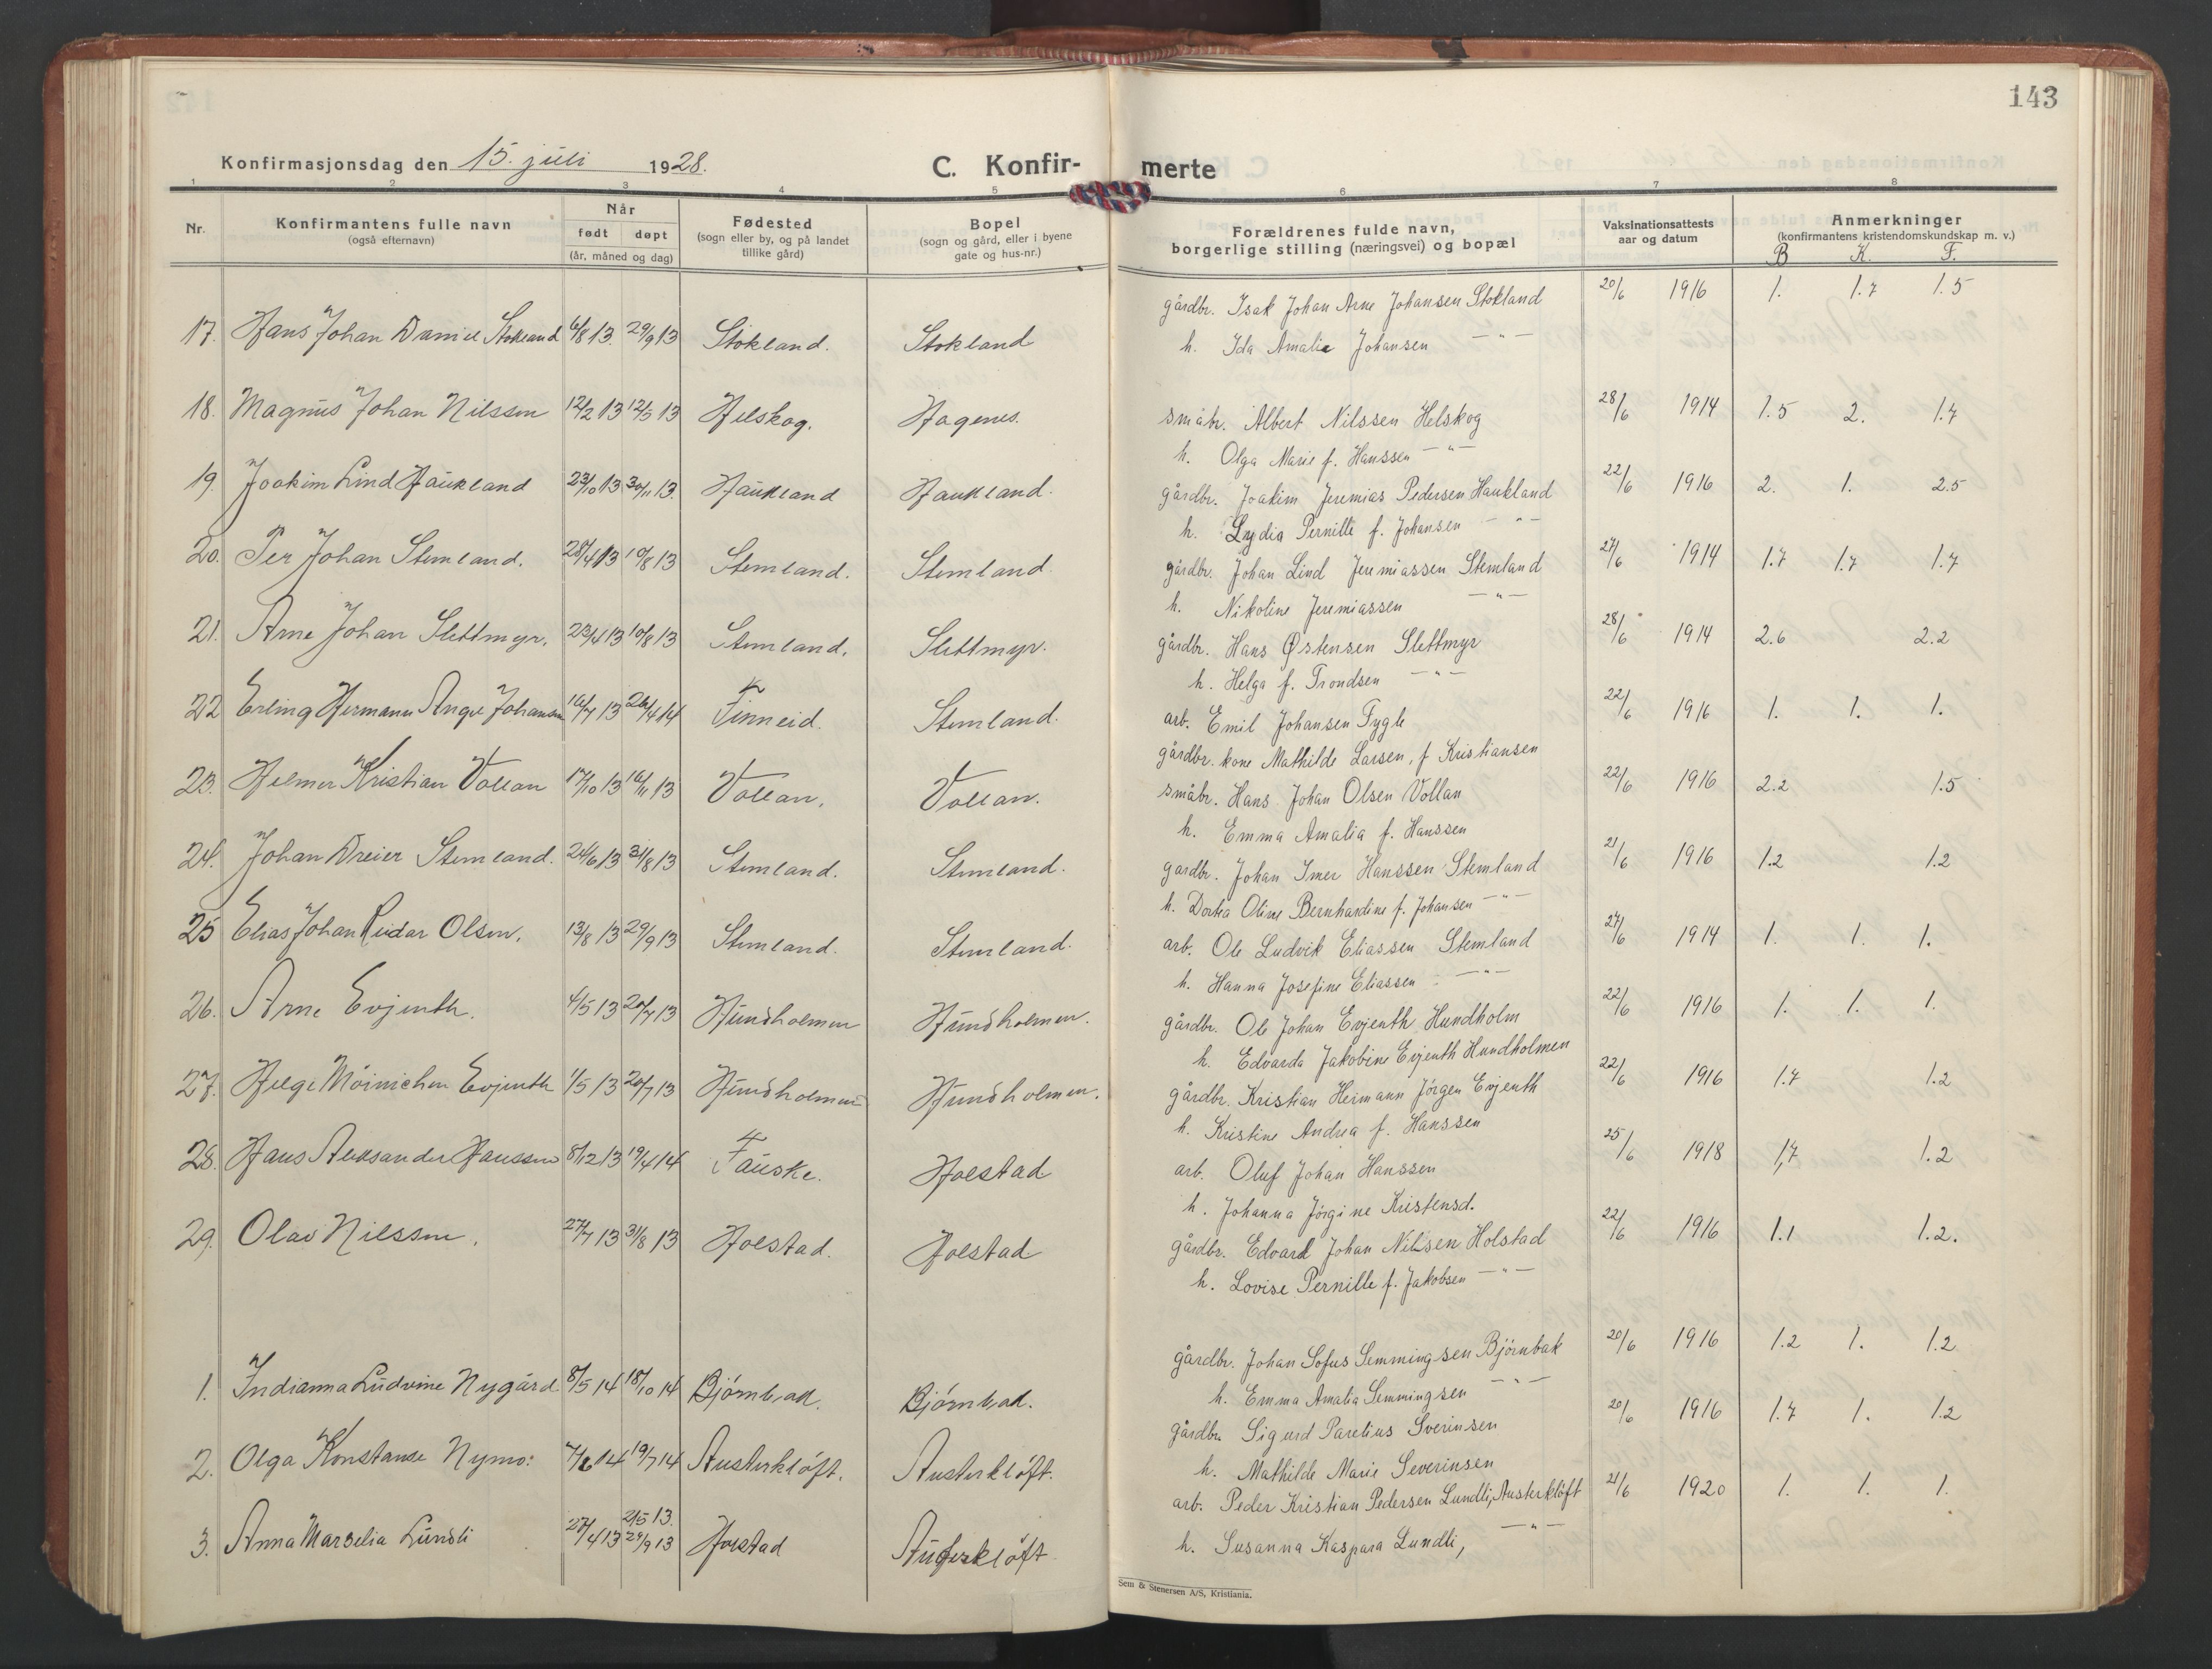 143
Konfirmasjonsdag den 15. juli 1928.
C. Konfir- merte
1 2 3 4 5 6 7 8
Nr.
Konfirmantens fulle navn
(også efternavn)
Når
født døpt
(år, måned og dag)
Fødested
(sogn eller by, og på landet
tillike gård)
Bopel
(sogn og gård, eller i byene
gate og hus-nr.)
Forældrenes fulde navn,
borgerlige stilling (næringsvei) og bopæl
Vaksinationsattests
aar og datum
Anmerkninger
(konfirmantens kristendomskundskap m. v.)
B K. F.
17. Hans Johan Daniel Stokland 6/8 13. 29/9 13 Stokland. Stokland gårdbr. Isak Johan Arne Johansen Stokland 20/6 1916 1. 1.7 1.5
h. Ida Amalie Johansen — " —
18. Magnus Johan Nilssen 12/2 13 12/5 13 Helskog. Hagenes. småbr. Albert Nilssen Helskog 28/6 1914 1.5 2. 1.7
h. Olga Marie f. Hanssen — " —
19. Joakim Lind Haukland 23/10 13 30/11 13. Haukland Haukland. gårdbr. Joakim Jeremias Pedersen Haukland 22/6 1916 2. 1. 2.5
h. Lydia Pernille f. Johansen — " —
20. Per Johan Stemland. 28/4 13 10/8 13 Stemland. Stemland gårdbr. Johan Lind Jeremiassen Stemland 27/6 1914 1.7 1.7 1.7
h. Nikoline Jeremiassen — " —
21. Arne Johan Slettmyr. 23/4 13 10/8 13 Stemland. Slettmyr. gårdbr. Hans Østensen Slettmyr 28/6 1914 2.6 2.2
h. Helga f. Trondsen — " —
22 Erling Hermann Angel Johansen 16/7 13 26/4 14 Finneid. Stemland. arb. Emil Johansen Fygle 22/6 1916 1. 1. 1.
gårdbr. kone Mathilde Larsen, f Kristiansen
23. Helmer Kristian Vollan 17/10 13 16/11 13 Vollan. Vollan. småbr. Hans Johan Olsen Vollan 22/6 1916 2.2 1.5
h. Emma Amalia f. Hanssen
24. Johan Dreier Stemland. 24/6 13 31/8 13 Stemland. Stemland. gardbr. Johan Imer Hanssen Stemland 21/6 1916 1.2 1.2
h. Dortea Oline Bernhardine f. Johansen — " —
25 Elias Johan Reidar Olsen. 13/8 13 29/9 13 Stemland. Stemland. arb. Ole Ludvik Eliassen Stemland 27/6 1914 1. 1. 1.
h. Hanna Josefine Eliassen — " —
26. Arne Evjenth. 4/5 13 20/7 13 Hundholmen Hundholmen. gårdbr. Ole Johan Evjenth Hundholm 22/6 1916 1. 1. 1.
h. Edvarda Jakobine Evjenth Hundholmen
27. Helge Möinichen Evjenth 1/5 13 20/7 13 Hundholmen Hundholmen. gårdbr. Kristian Heimann Jörgen Evjenth 22/6 1916 1.7 1.2
h. Kristine Andrea f. Hanssen
28. Hans Aleksander Hanssen 8/12 13 19/4 14 Fauske. Holstad arb. Oluf Johan Hanssen 25/6 1918 1,7 1.2
h. Johanna Jörgine Kristensd.
29. Olav Nilssen. 27/7 13 31/8 13 Holstad. Holstad gårdbr. Edvard Johan Nilsen Holstad 22/6 1916 1.1 1.2.
h. Lovise Pernille f. Jakobsen — " —
1. Indianna Ludvine Nygård 8/5 14 18/10 14 Bjørnbak. Bjørnbak. gårdbr. Johan Sofus Semmingsen Björnbak 20/6 1916 1.2 1. 1.2
h. Emma Amalia Semmingsen — " —
2. Olga Konstanse Nymo. 7/6 14 19/7 14 Austerkløft. Austerkløft. gårdbr. Sigurd Parelius Sverinsen 20/6 1916 1.7 1. 1.2
h. Mathilde Marie Severinsen
3. Anna Marselia Lundli 27/4 13 2/5 13. 29/9 13 Holstad Austerkløft arb. Peder Kristian Pedersen Lundli, Austerklöft 21/6 1920 1. 1. 1.
h. Susanna Kaspara Lundli, — " —
Sem & Stenersen A/S, Kristiania.